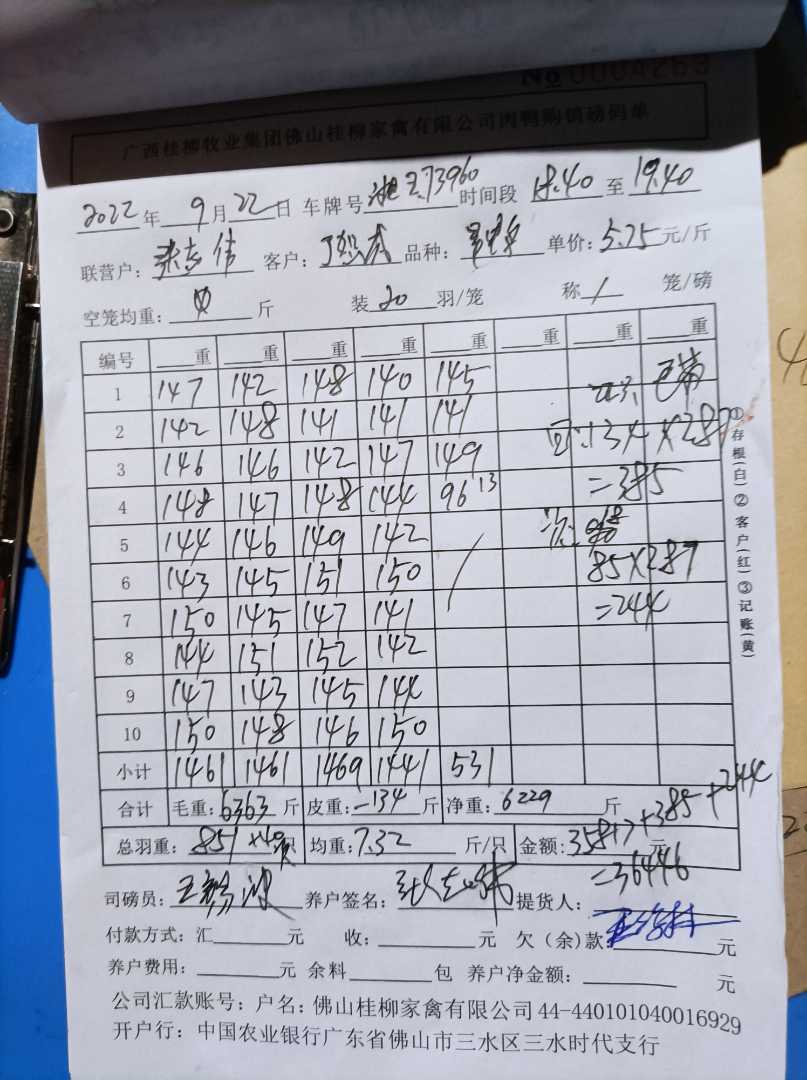 No 0004269
广西桂柳牧业集团佛山桂柳家禽有限公司肉鸭购销磅码单
2022年 9月 22日 车牌号 73960 时间段 18.40 至 19.40
联营户: 客户: 品种: 单价: 5.75 元/斤
空笼均重: 0 斤 装 20 羽/笼 称 1 笼/磅
编号 重 重 重 重 重 重 重 重
1 147 142 148 140 145
2 142 148 141 141 141 134 × 2.87
3 146 146 142 147 149 =385
4 148 147 148 144 96 13
5 144 146 149 142
6 143 145 151 150 / 85×2.87
7 150 145 147 141 =244
8 144 151 152 142
9 147 143 145 144
10 150 148 146 150
小计 1461 1461 1469 1441 531
合计 毛重: 6363 斤 皮重: -134 斤 净重: 6229 斤
总羽重: 851 只 均重: 7.32 斤/只 金额: 35817+385+244 元
=36446
司磅员: 养户签名: 提货人:
付款方式: 汇 元 收: 元 欠（余）款: 元
养户费用: 元 余料 包 养户净金额: 元
公司汇款账号；户名: 佛山桂柳家禽有限公司 44-440101040016929
开户行: 中国农业银行广东省佛山市三水区三水时代支行
①存根(白)②客户(红)③记账(黄)